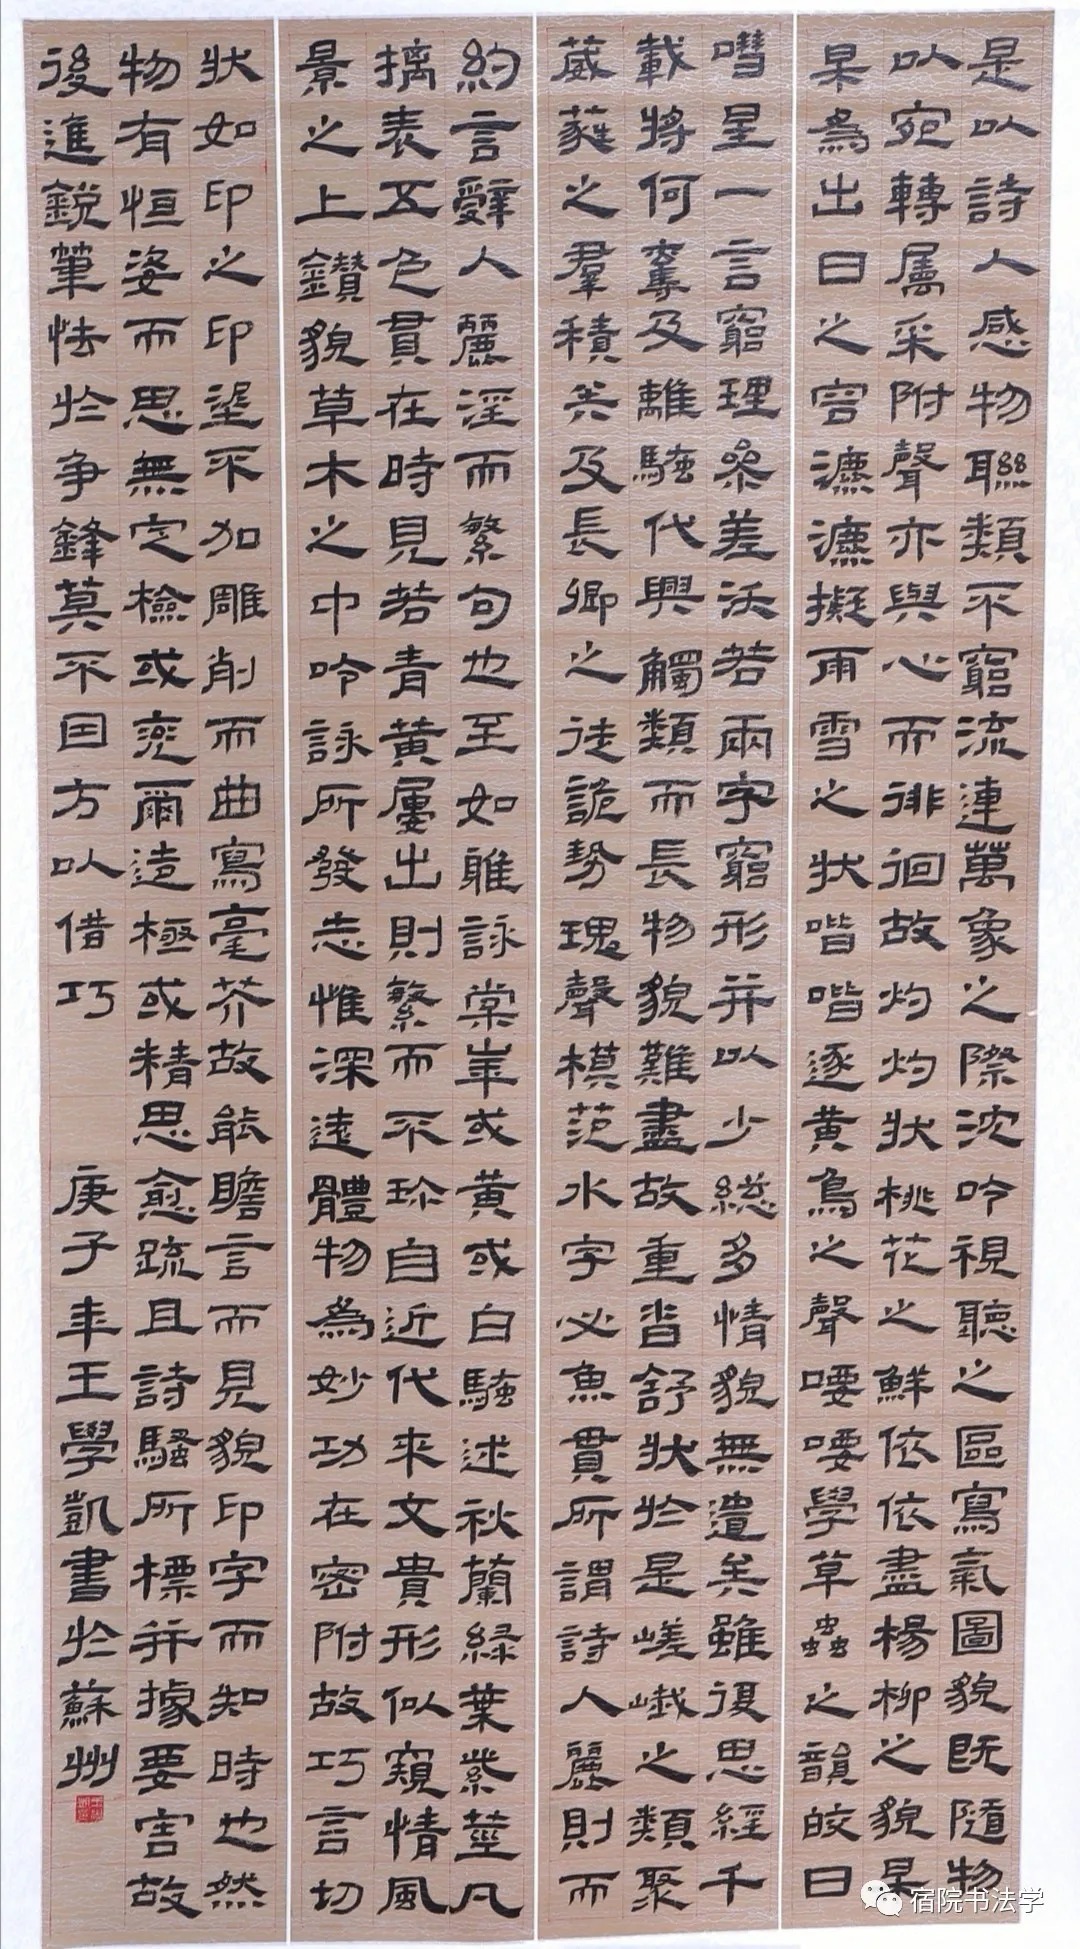 是以詩人感物聯類不窮流連萬象之際沈吟視聽之區寫氣圖貌既隨物
以宛轉屬采附聲亦與心而徘徊故灼灼狀桃花之鮮依依盡楊柳之貌杲
杲為出日之容瀌瀌擬雨雪之狀喈喈逐黃鳥之聲喓喓學草蟲之韻皎日
嘒星一言窮理參差沃若兩字窮形并以少總多情貌無遺矣雖復思經千
載將何奪及離騷代興觸類而長物貌難盡故重沓舒狀於是嵯峨之類聚
葳蕤之羣積矣及長卿之徒詭勢瑰聲模范水字必魚貫所謂詩人麗則而
約言辭人麗淫而繁句也至如雎詠棠華或黃或白騷述秋蘭綠葉紫莖凡
摛表五色貫在時見若青黃屢出則繁而不珍自近代來文貴形似窺情風
景之上鑽貌草木之中吟詠所發志惟深遠體物為妙功在密附故巧言切
狀如印之印埿不加雕削而曲寫毫芥故能瞻言而見貌印字而知時也然
物有恒姿而思無定檢或率爾造極或精思愈疏且詩騷所標并據要害故
後進銳筆怯於爭鋒莫不因方以借巧
庚子年王學凱書於蘇州
宿院书法学